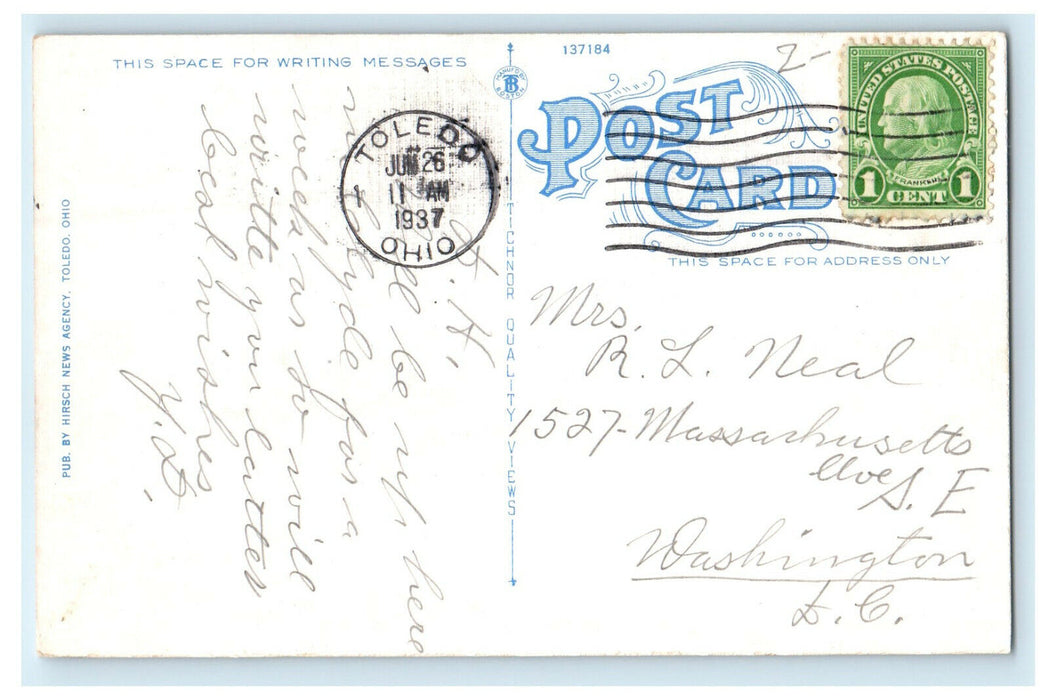 THIS SPACE FOR WRITING MESSAGES
137184
2-
MANUF'D BY
BOSTON
POST CARD
UNITED STATES POSTAGE
FRANKLIN
1 CENT 1
TOLEDO
JUN 26
11 AM
1937
OHIO
1
THIS SPACE FOR ADDRESS ONLY
TICHNOR QUALITY VIEWS
PUB. BY HIRSCH NEWS AGENCY, TOLEDO, OHIO
be up here
for a
week or so will
write you later
best wishes
Mrs.
R. L. Neal
1527-Massachusetts
Ave S. E
Washington
D. C.